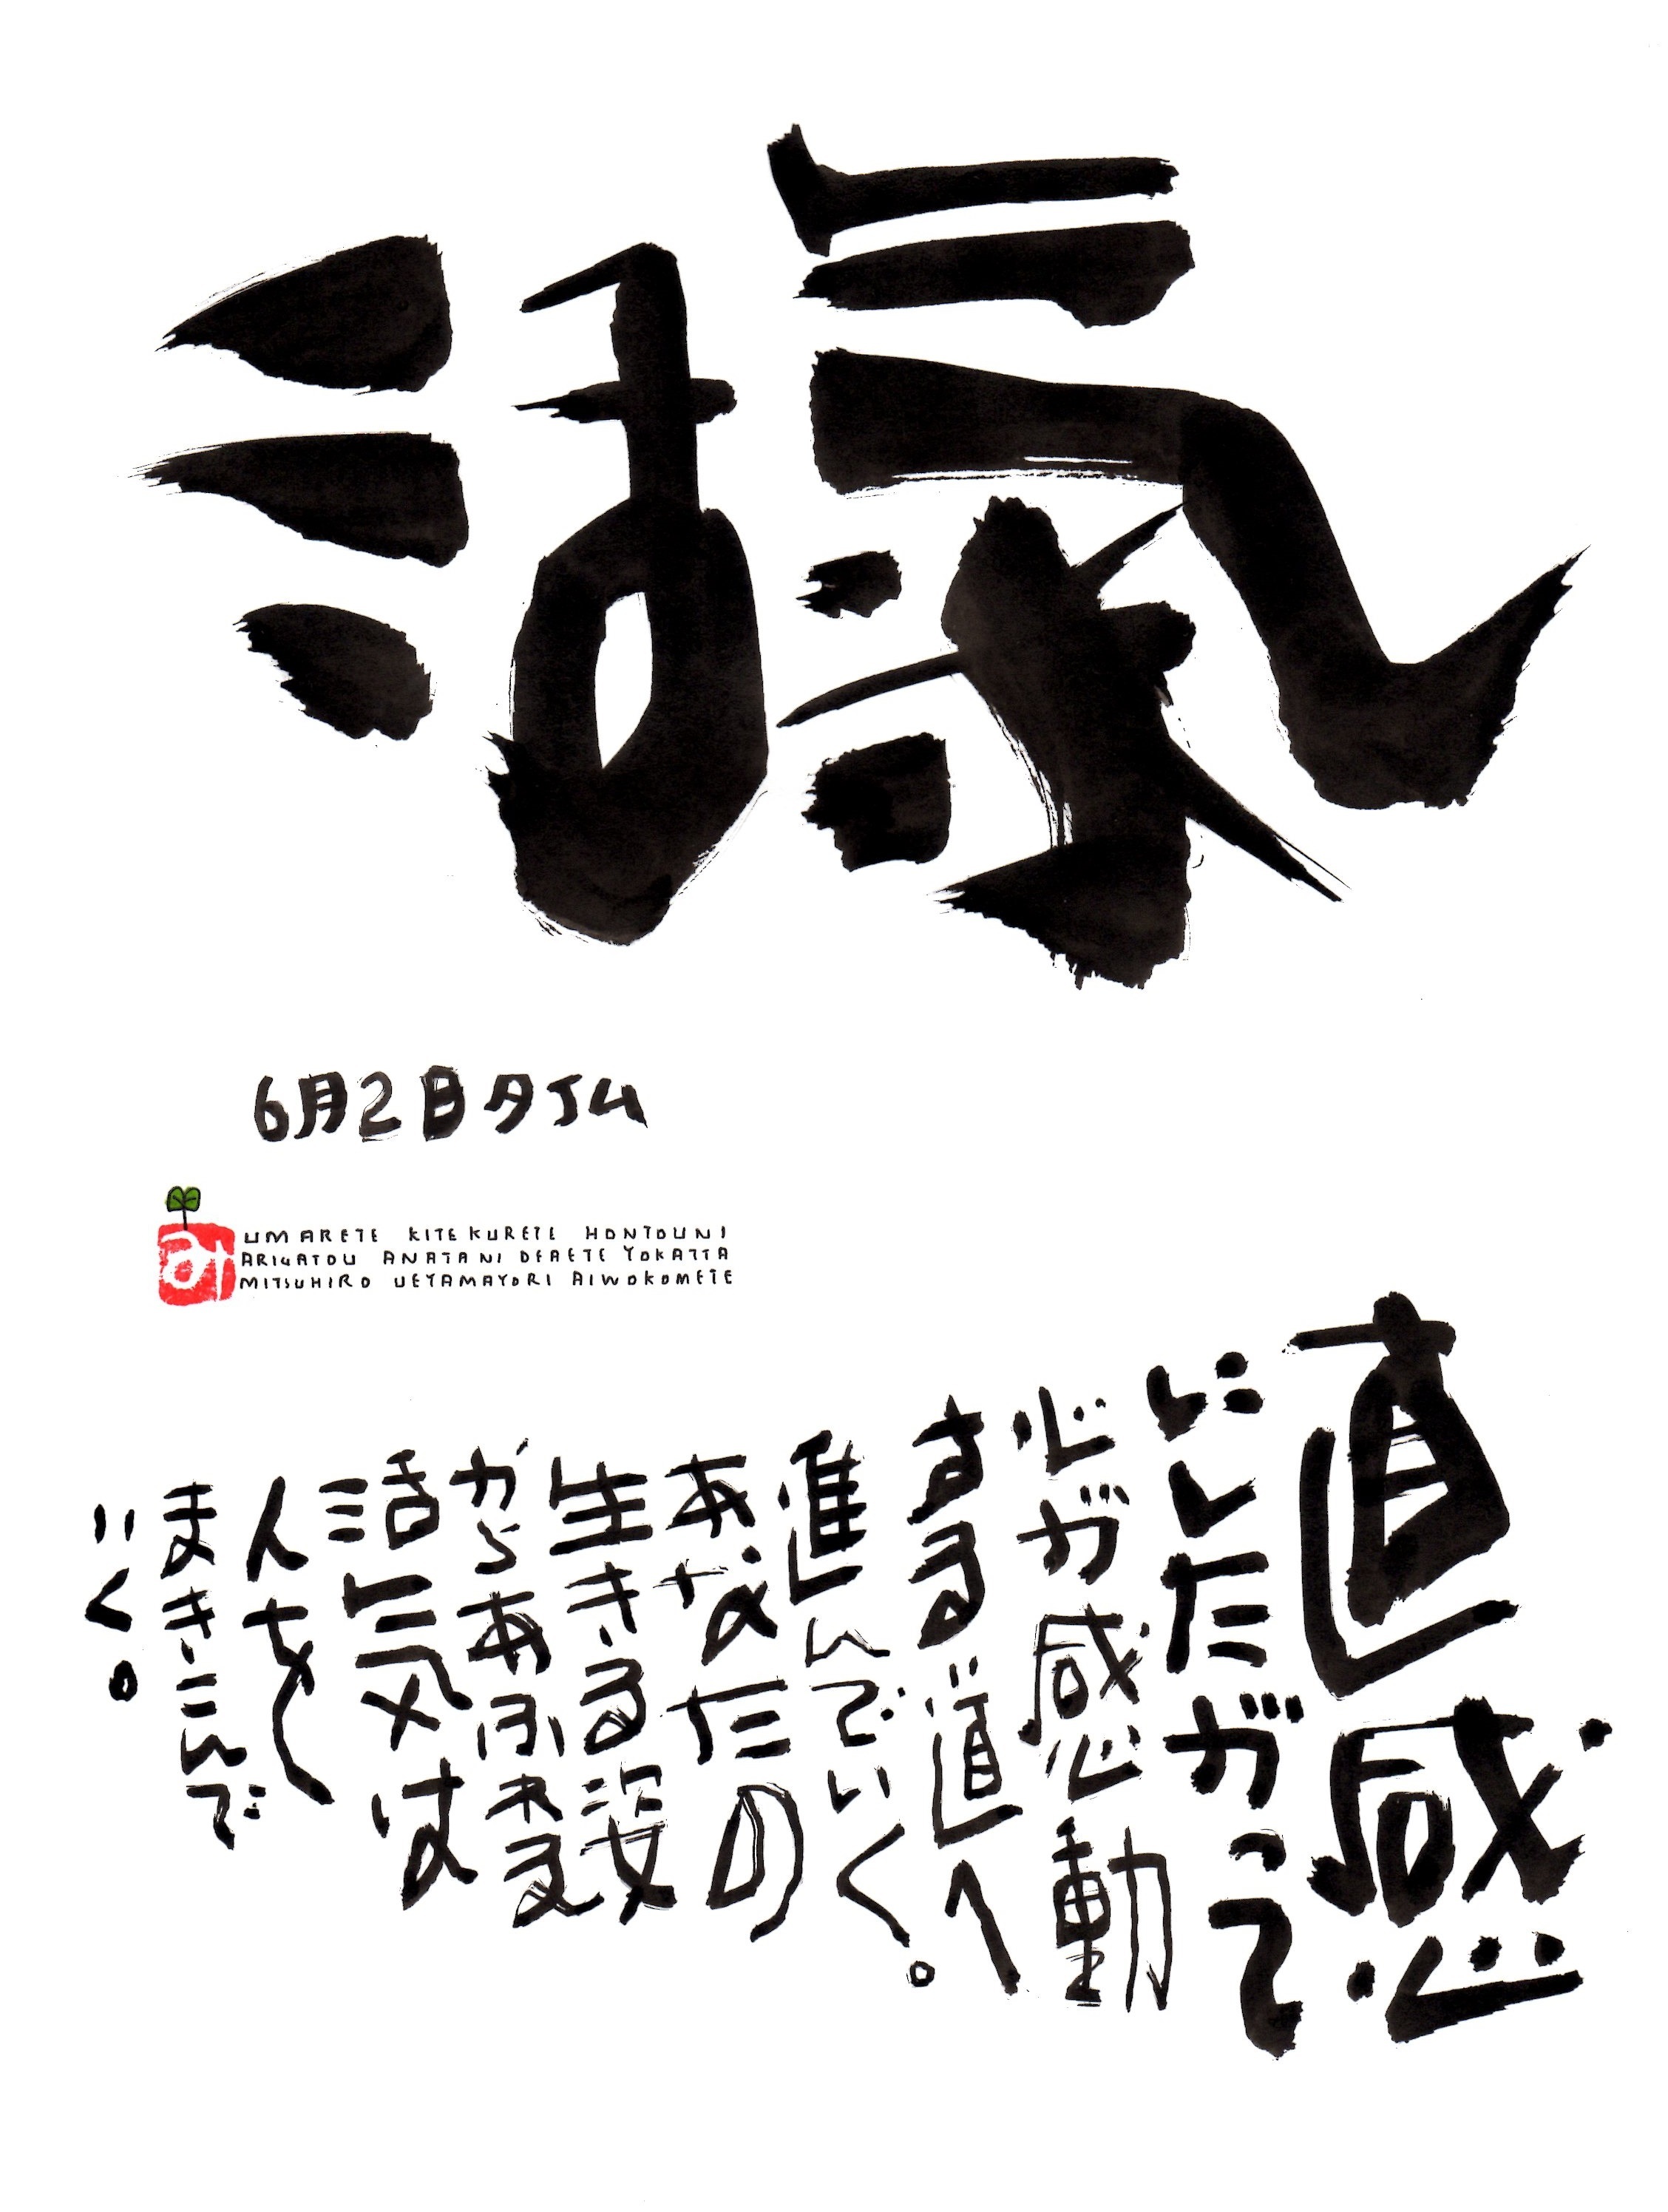 活氣
6月2日
み
UMARETE KITEKURETE HONTOUNI
ARIGATOU ANATANI DEAETE YOKATTA
MITSUHIRO UEYAMAYORI AIWOKOMETE
直感
にしたがって
心が感動
する道へ
進んでいく。
あなたの
生きる姿
からあふれる
活気は
人を
まきこんで
いく。